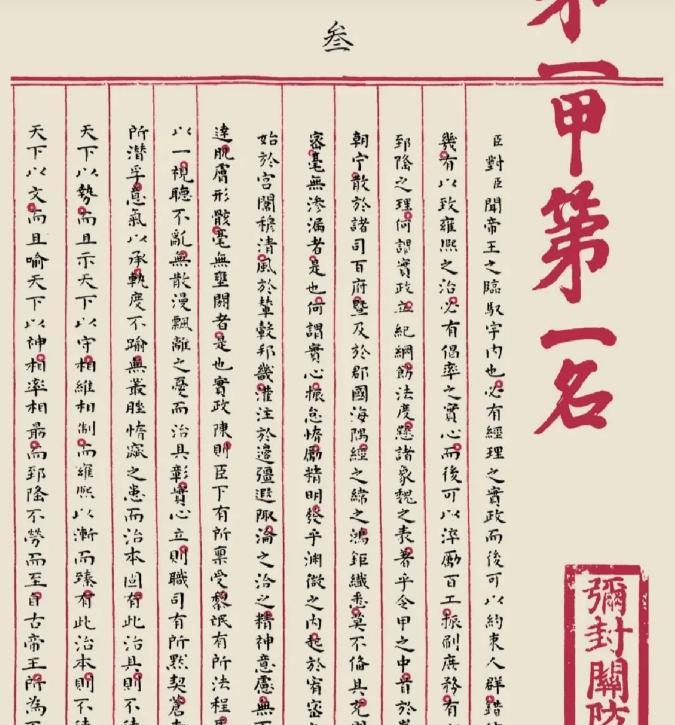 叁
第一甲第一名
彌封關防
臣對臣聞帝王之臨馭宇內也必有經理之實政而後可以約束人群錯
幾有以致雍熙之治必有倡率之實心而後可以淬勵百工振刷庶務有
郅隆之理何謂實政立紀綱飭法度懸諸象魏之表著乎令甲之中首於
朝宁散於諸司百府暨及於郡國海隅經之緯之鴻鉅纖悉莫不備具充
密毫無滲漏者是也何謂實心振怠惰勵精明發乎淵微之內起於宥密
始於宮闈穆清風於輦轂邦畿灌注於邊疆遐陬淪之洽之精神意慮無
達肌膚形骸毫無壅閼者是也實政陳則臣下有所稟受黎氓有所法程
以一視聽不亂無散漫飄離之憂而治具彰實心立則職司有所默契蒼
所潛孚意氣以承軌度不踰無叢脞惰窳之患而治本固有此治具則不
天下以勢而且示天下以守相維相制而雍熙以漸而臻有此治本則不
天下以文而且喻天下以神相率相勗而郅隆不勞而至自古帝王所為